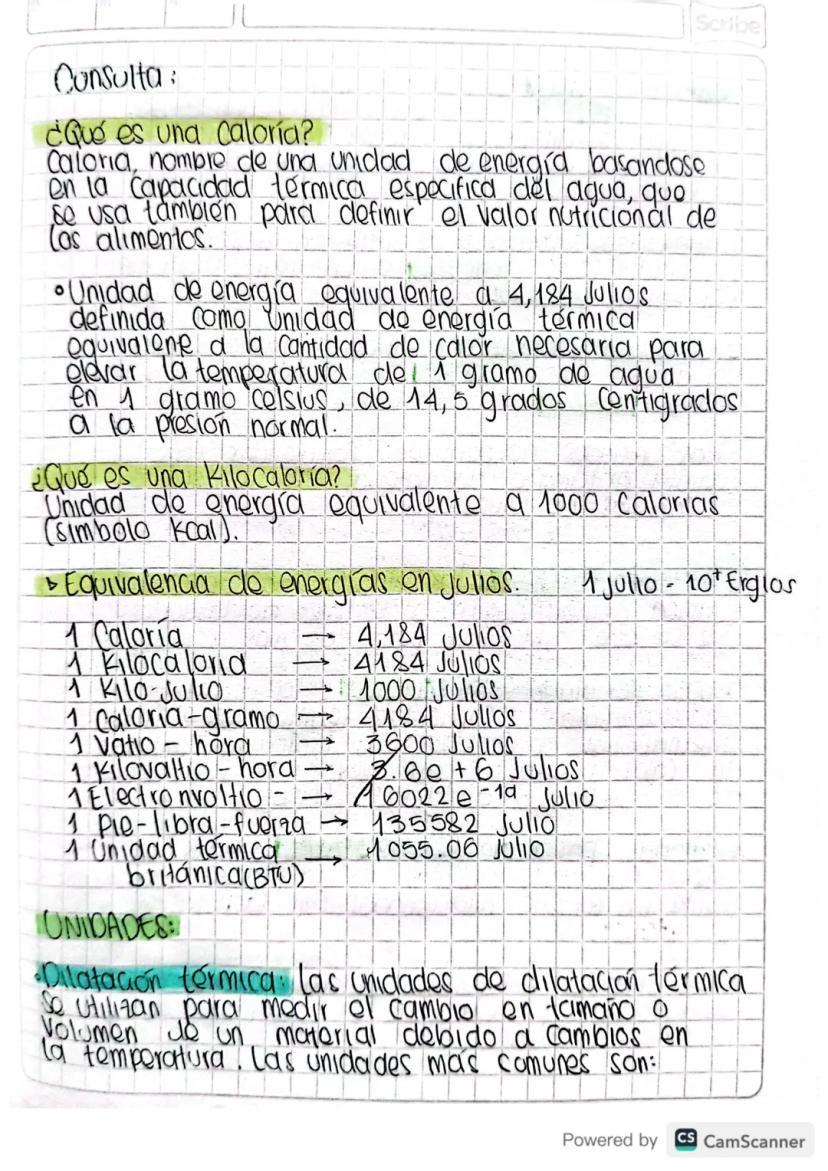 Scribe
Consulta:
¿Qué es una Caloría?
Caloría, nombre de una unidad de energía basandose
en la capacidad térmica especifica del agua, que
se usa también para definir el valor nutricional de
los alimentos.
• Unidad de energía equivalente a 4,184 Julios
definida como unidad de energía térmica
equivalene a la cantidad de calor necesaria para
elevar la temperatura de 1 gramo de agua
en 1 gramo celsius, de 14,5 grados centigrados
a la presión normal.
¿Qué es una Kilocaloría?
Unidad de energía equivalente a 1000 Calorias
(simbolo Kcal).
Equivalencia de energías en julios. 1 Julio - 10⁺ Ergios
1 Caloría → 4,184 Julios
1 Kilocaloria → 4184 Julios
1 Kilo-Julio → 1000 Julios
1 Caloria-gramo → 4184 Julios
1 Vatio - hora → 3600 Julios
1 Kilovattio - hora → 3.6e + 6 Julios
1 Electronvoltio - → 1 6022 e -19 Julio
1 Pie-libra-fuerza → 135582 Julio
1 Unidad térmica → 1055.06 Julio
británica(BTU)
UNIDADES:
• Dilatación térmica: las unidades de dilatación térmica
se utilizan para medir el cambio en tamaño o
volumen de un material debido a cambios en
la temperatura. Las unidades mas comunes son:
Powered by CS CamScanner